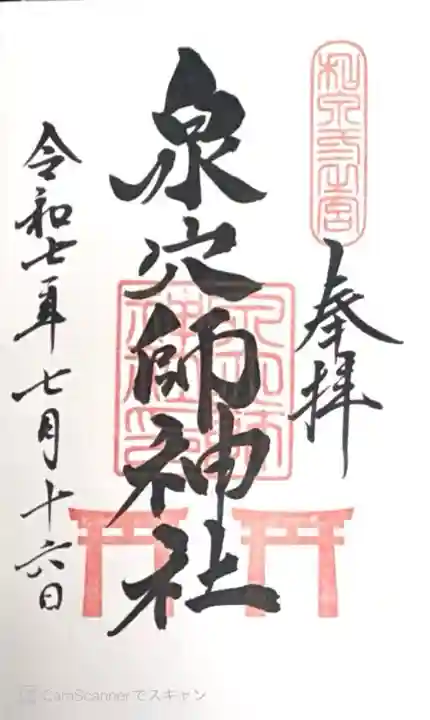 和泉弐之宮
奉拝
泉穴師神社
令和七年七月十六日
CamScannerでスキャン